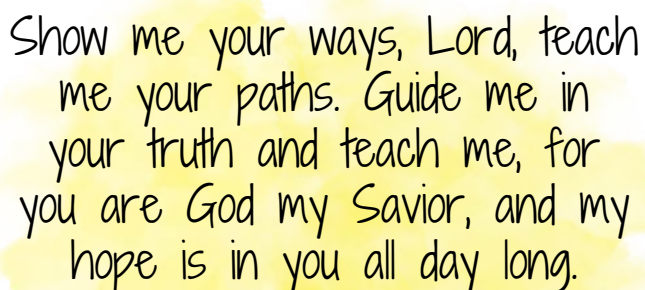 Show me your ways, Lord, teach
me your paths. Guide me in
your truth and teach me, for
you are God my Savior, and my
hope is in you all day long.